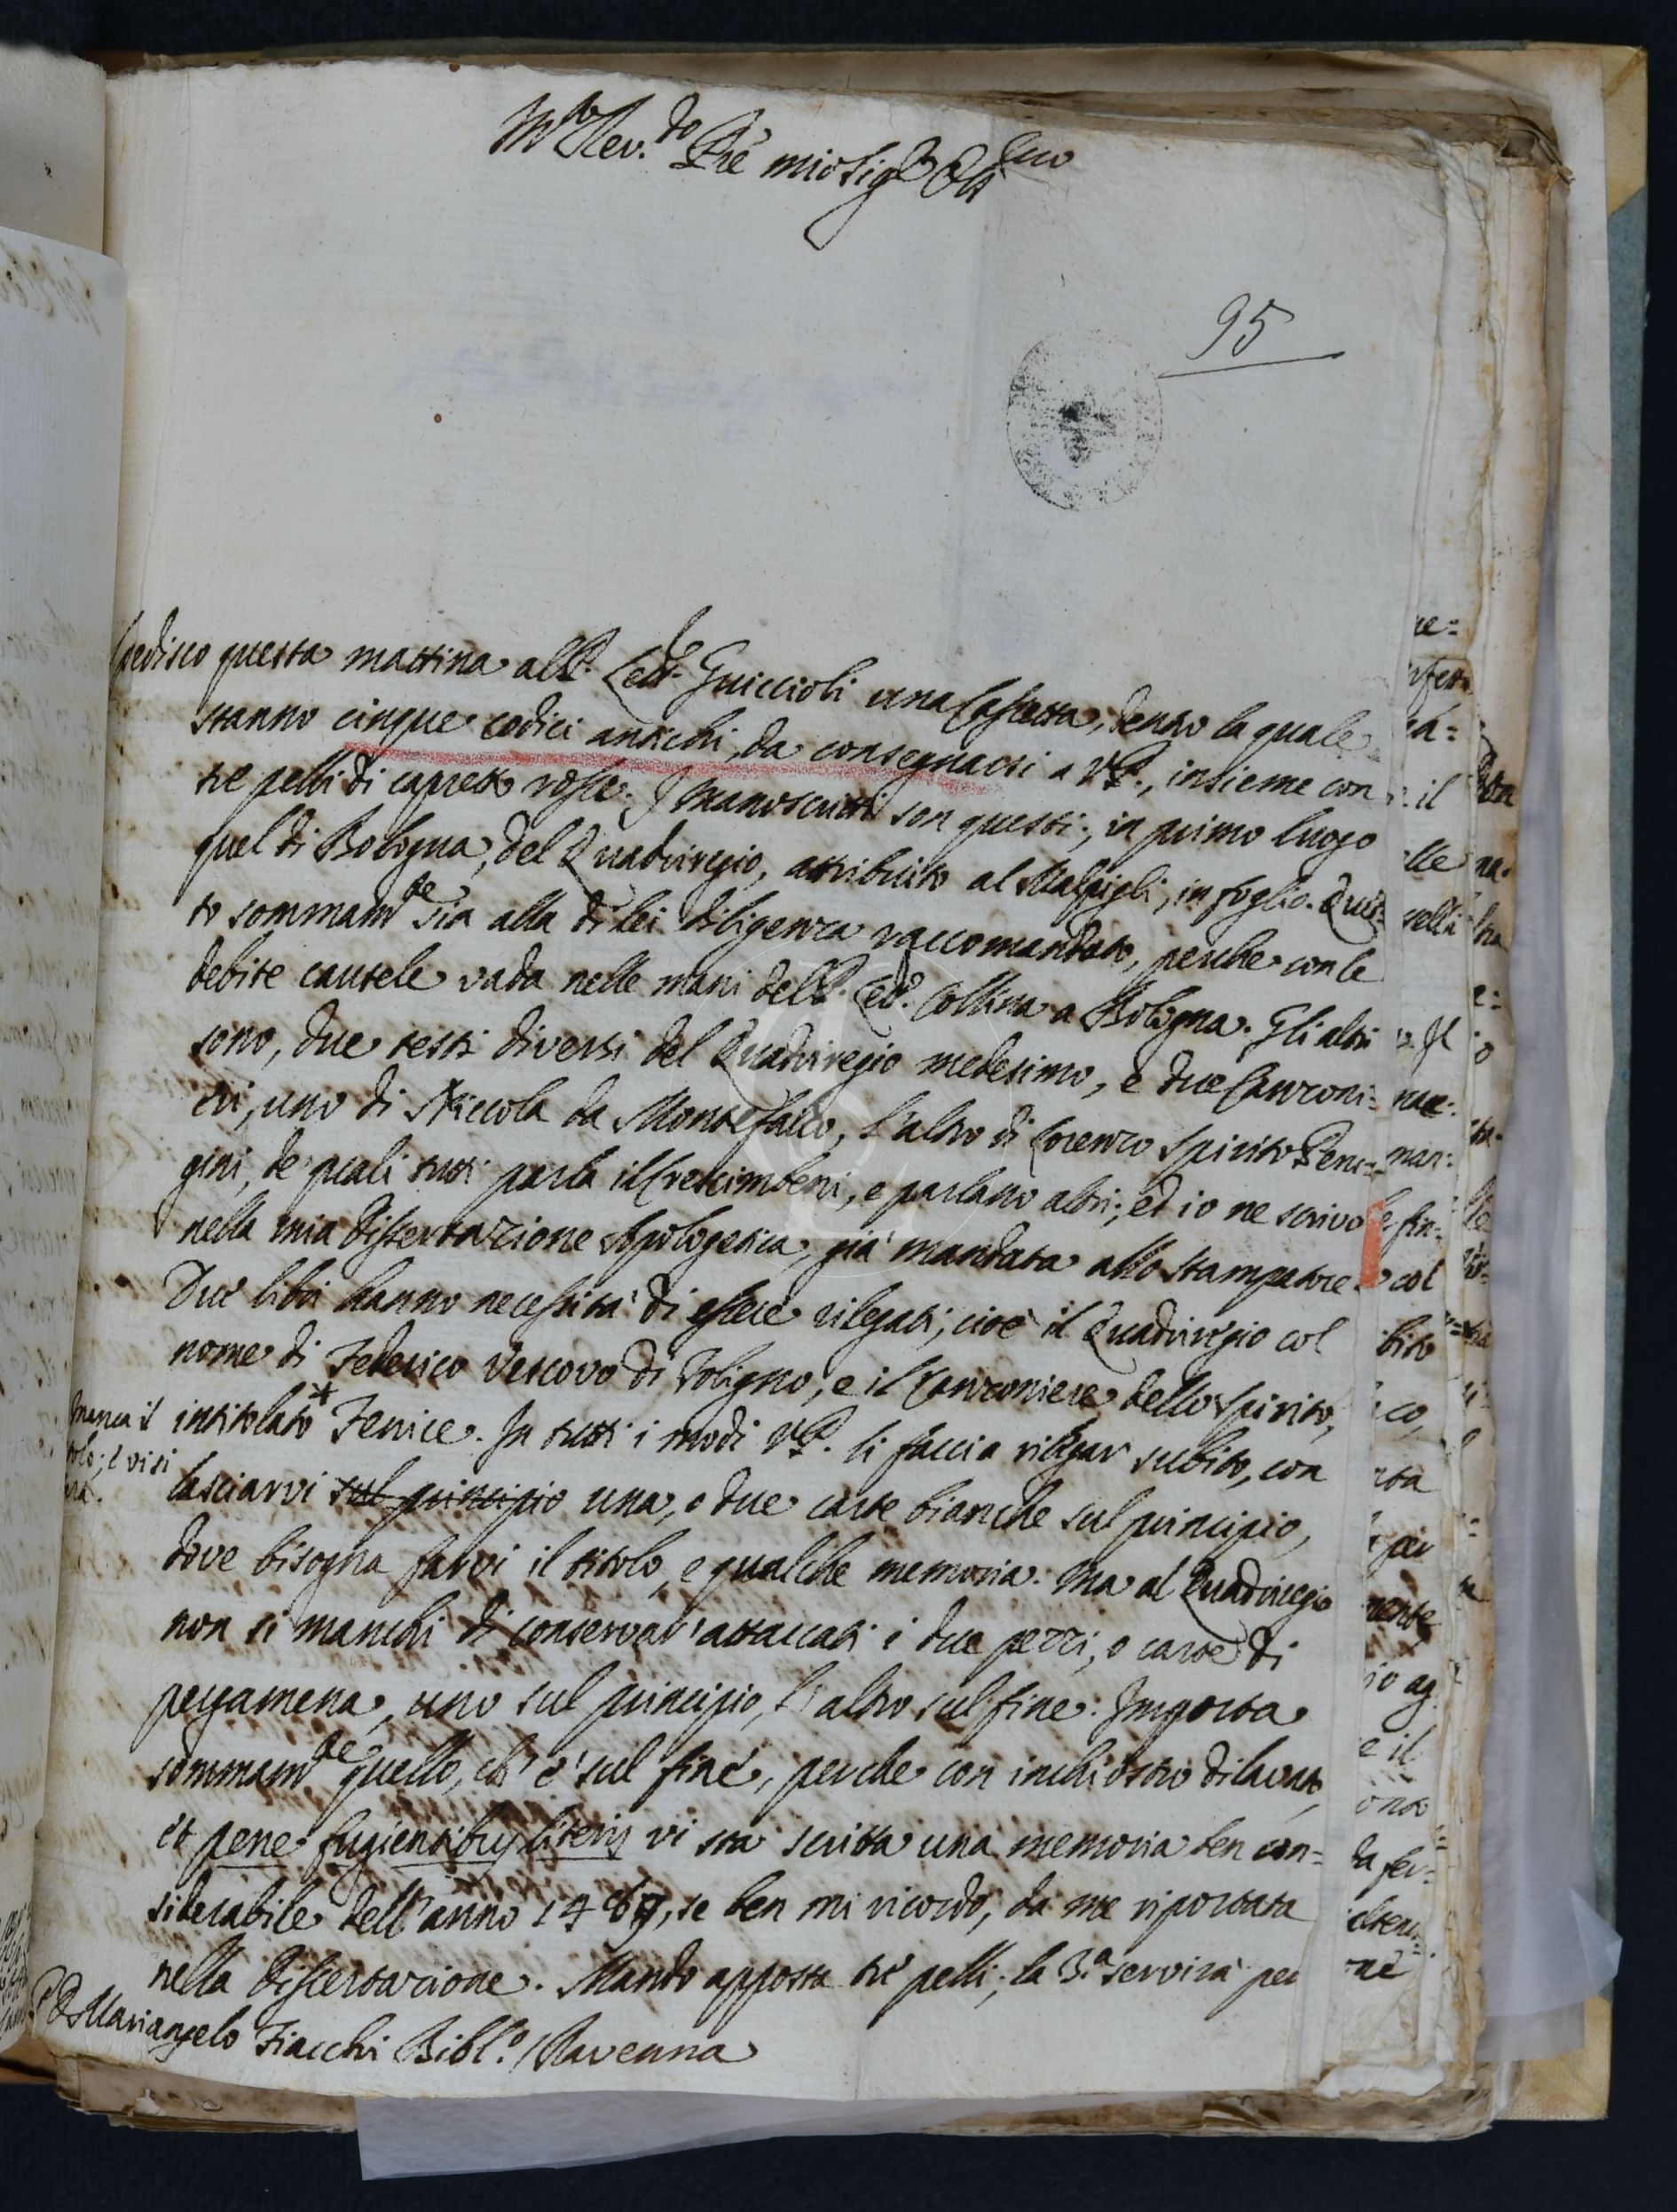 M.to Rev.do Pre mio Sig.r Oss.mo
95
Spedisco questa mattina al P. Lett.re Guiccioli una Cassetta, dentro la quale
stanno cinque codici antichi, da consegnarsi a V.P., insieme con
tre pelli di capretto rosse. I manoscritti son questi; in primo luogo
quel di Bologna, del Quadriregio, attribuito al Malpigli, in foglio. Ques-
to sommam.te sia alla di lei diligenza raccomandato, perche con le
debite cautele vada nelle mani del P. Collina a Bologna. Gli altri
sono, due testi diversi del Quadriregio medesimo, e due Canzoni=
eri, uno di Niccola da Montefalco, l'altro di Lorenzo Spirito Peru=
gini, de' quali tutti parla il Crescimbeni, e parlano altri; ed io ne scrivo
nella mia Dissertazione Apologetica, già mandata allo stampatore.
Due libri hanno necessità di essere rilegati, cioè il Quadriregio col
nome di Federico Vescovo di Foligno, e il Canzoniere dello Spirito,
intitolato* Fenice. In tutti i modi V.P. li faccia rilegar subito, con
manca il
tolo; e vi si
lasciarvi sul principio una, o due carte bianche sul principio,
dove bisogna farvi il titolo, e qualche memoria. Ma al Quadriregio
non si manchi di conservar' attaccati i due pezzi, o carte di
pergamena, uno sul principio, l'altro sul fine. Importa
sommam.te quello, ch'è sul fine, perche con inchiostro dilavato,
et pene fugientibus literis vi sta scritta una memoria ben con=
siderabile dell'anno , se ben mi ricordo, da me riportata
nella Dissertazione. Mando apposta tre pelli; la 3.a servirà per
P. D. Mariangelo Fiacchi Bibl.o Ravenna